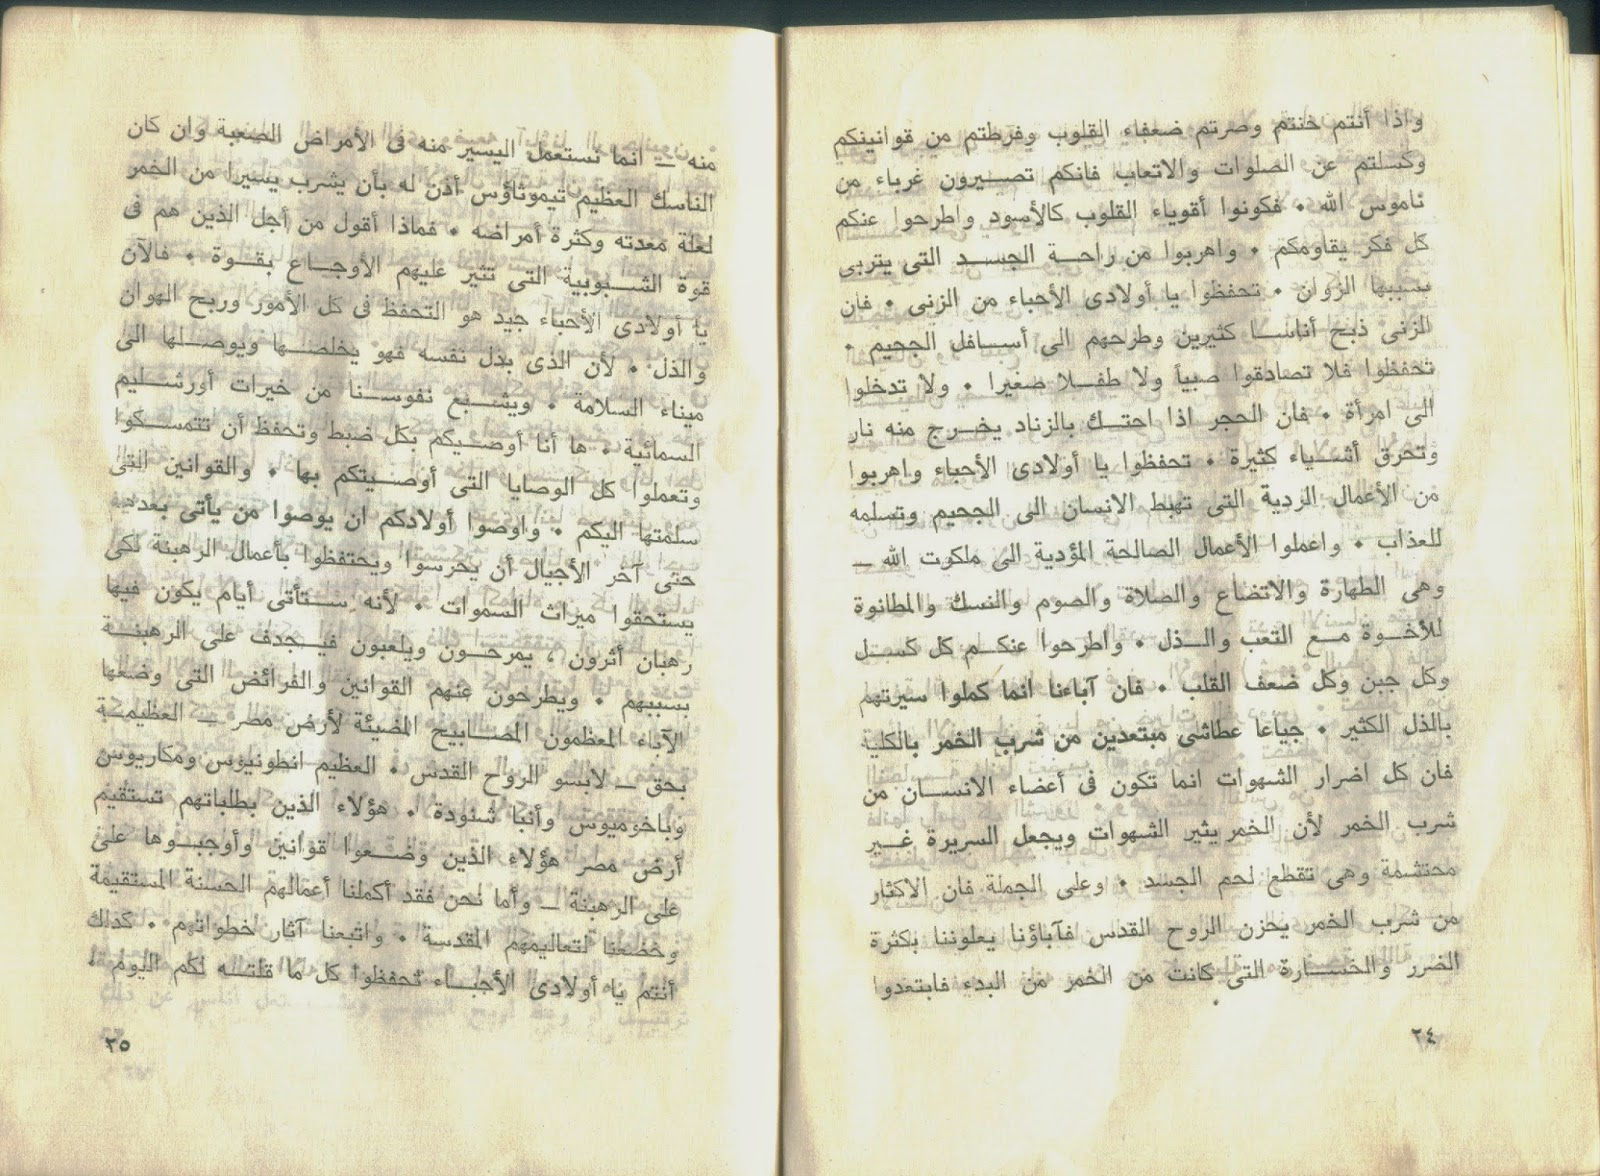 واذا أنتم خنتم وصرتم ضعفاء القلوب وفرطتم من قوانينكم
وكسلتم عن الصلوات والاتعاب فانكم تصيرون غرباء من
ناموس الله • فكونوا أقوياء القلوب كالأسود واطرحوا عنكم
كل فكر يقاومكم • واهربوا من راحة الجسد التى يتربى
بسببها الزوان • تحفظوا يا أولادى الأحباء من الزنى • فان
الزنى ذبح أناسا كثيرين وطرحهم الى أسافل الجحيم •
تحفظوا فلا تصادقوا صبياً ولا طفلا صغيرا • ولا تدخلوا
الى امرأة • فان الحجر اذا احتك بالزناد يخرج منه نار
وتحرق أشياء كثيرة • تحفظوا يا أولادى الأحباء واهربوا
من الأعمال الردية التى تهبط الانسان الى الجحيم وتسلمه
للعذاب • واعملوا الأعمال الصالحة المؤدية الى ملكوت الله –
وهى الطهارة والاتضاع والصلاة والصوم والنسك والمطانوة
للأخوة مع التعب والذل • واطرحوا عنكم كل كسل
وكل جبن وكل ضعف القلب • فان آباءنا انما كملوا سيرتهم
بالذل الكثير • جياعا عطاشى مبتعدين من شرب الخمر بالكلية
فان كل اضرار الشهوات انما تكون فى أعضاء الانسان من
شرب الخمر لأن الخمر يثير الشهوات ويجعل السريرة غير
محتشمة وهى تقطع لحم الجسد • وعلى الجملة فان الاكثار
من شرب الخمر يحزن الروح القدس فآباؤنا يعلوننا بكثرة
الضرر والخسارة التى كانت من الخمر من البدء فابتعدوا
٢٤
منه – انما تستعمل اليسير منه فى الأمراض الصعبة وان كان
الناسك العظيم تيموثاؤس أذن له بأن يشرب يسيرا من الخمر
لعلة معدته وكثرة أمراضه • فماذا أقول من أجل الذين هم فى
قوة الشبوبية التى تثير عليهم الأوجاع بقوة • فالآن
يا أولادى الأحباء جيد هو التحفظ فى كل الأمور وربح الهوان
والذل • لأن الذى بذل نفسه فهو يخلصها ويوصلها الى
ميناء السلامة • ويشبع نفوسنا من خيرات أورشليم
السمائية • ها أنا أوصيكم بكل ضبط وتحفظ أن تتمسكوا
وتعملوا كل الوصايا التى أوصيتكم بها • والقوانين التى
سلمتها اليكم • واوصوا أولادكم ان يوصوا من يأتى بعدهم
حتى آخر الأجيال أن يحرسوا ويحتفظوا بأعمال الرهبنة لكى
يستحقوا ميراث السموات • لأنه ستأتى أيام يكون فيها
رهبان أثرون ، يمرحون ويلعبون فيجدف على الرهبنة
بسببهم • ويطرحون عنهم القوانين والفرائض التى وضعها
الآباء المعظمون المصابيح المضيئة لأرض مصر – العظيمة
بحق – لابسو الروح القدس • العظيم انطونيوس ومكاريوس
وباخوميوس وأنبا شنودة • هؤلاء الذين بطلباتهم تستقيم
أرض مصر هؤلاء الذين وضعوا قوانين وأوجبوها على
على الرهبنة – وأما نحن فقد أكملنا أعمالهم الحسنة المستقيمة
وخضعنا لتعاليمهم المقدسة • واتبعنا آثار خطواتهم • كذلك
أنتم يا أولادى الأحباء تحفظوا كل ما قلته لكم اليوم •
٢٥